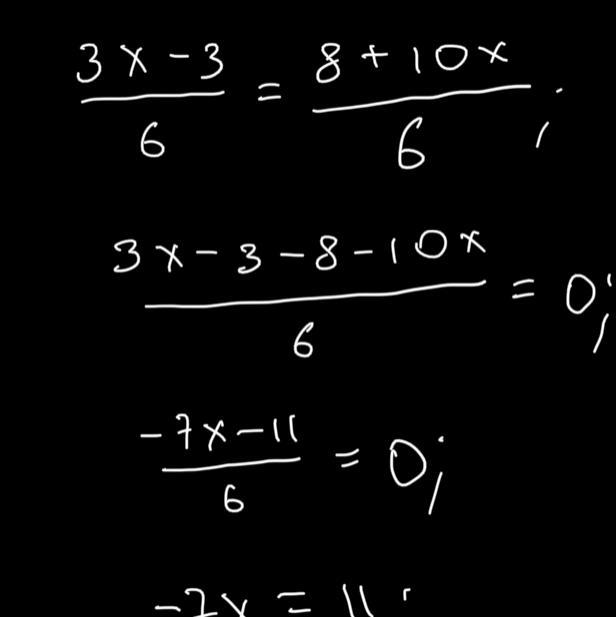 3x-3/6 = 8+10x/6;
3x-3-8-10x/6 = 0;
-7x-11/6 = 0;
-7x = 11